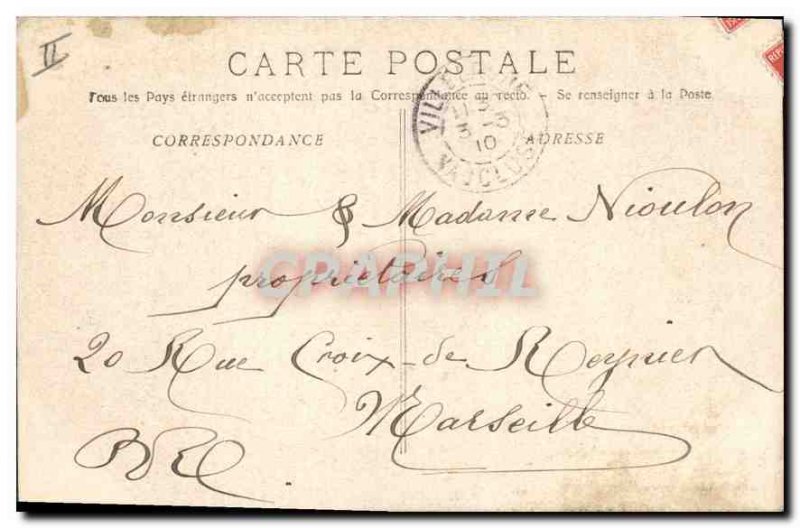 II
CARTE POSTALE
Tous les Pays étrangers n'acceptent pas la Correspondance au recto. - Se renseigner à la Poste
CORRESPONDANCE
ADRESSE
10
VAUCLUSE
Monsieur & Madame Nioulon
propriétaires
CPAPHIL
20 Rue Croix-de Reynier
Marseille